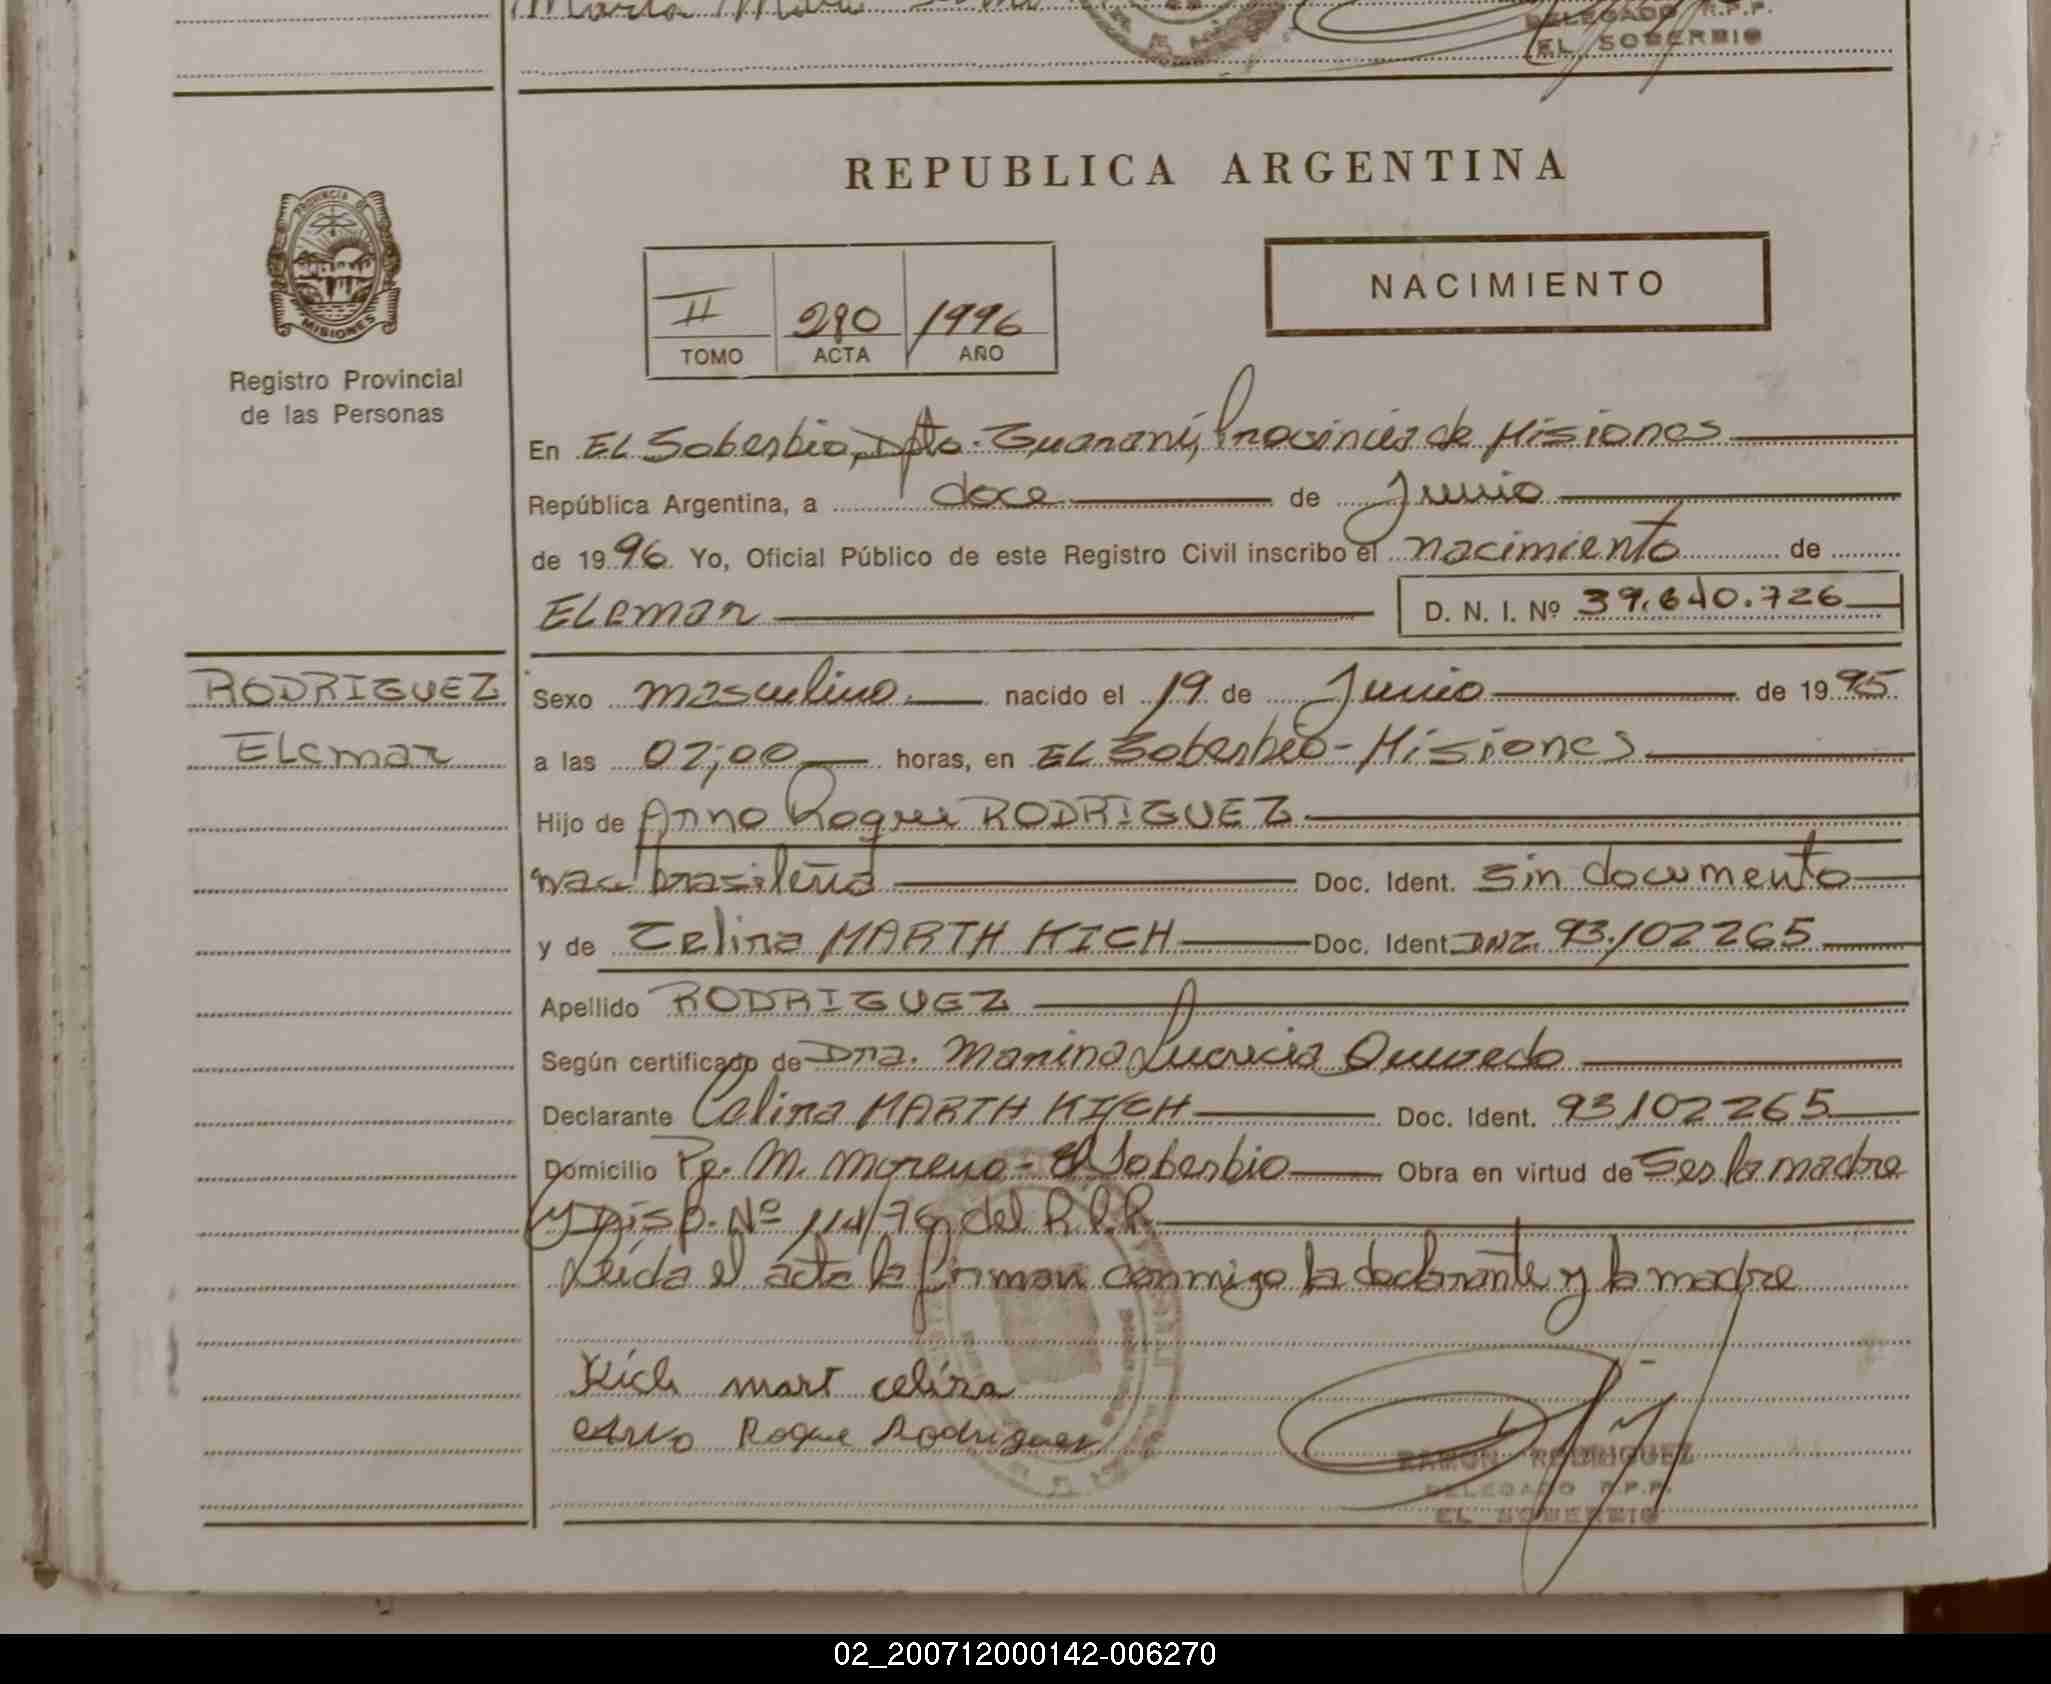 DELEGADO R.P.P.
EL SOBERBIO
REPUBLICA ARGENTINA
PROVINCIA DE
MISIONES
NACIMIENTO
II 290 1996
TOMO ACTA AÑO
Registro Provincial
de las Personas
En El Soberbio, Dpto. Guaraní, Provincia de Misiones
República Argentina, a doce de Junio
de 1996. Yo, Oficial Público de este Registro Civil inscribo el nacimiento de
Elemar D. N. I. Nº 39.640.726
RODRIGUEZ
Elemar
Sexo masculino nacido el 19 de Junio de 1995
a las 02;00 horas, en El Soberbio - Misiones
Hijo de Arno Roque RODRIGUEZ
nac brasileña Doc. Ident. Sin documento
y de Celina MARTH KICH Doc. Ident. DNI. 93.102265
Apellido RODRIGUEZ
Según certificado de Dra. Marina Lucrecia Quevedo
Declarante Celina MARTH KICH Doc. Ident. 93102265
Domicilio Pje. M. Moreno - El Soberbio Obra en virtud de Ser la madre
y Disp. Nº 114/76 del R.P.P.
Leida el acta la firman conmigo la declarante y la madre
Kich mart celina
Arno Roque Rodriguez
RAMON RODRIGUEZ
DELEGADO R.P.P.
EL SOBERBIO
02_200712000142-006270